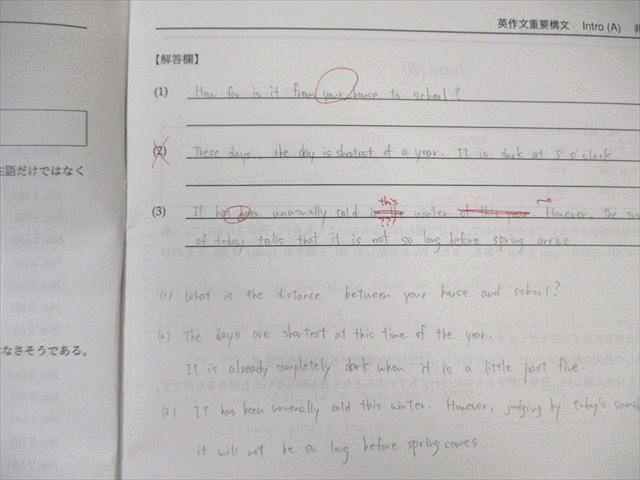 英作文重要構文 Intro (A)
【解答欄】
(1) How far is it from your house to school?
主語だけではなく
(2) These days, the day is shotest of a year. It is dark at 5 o'clock
this
(3) It has been unusually cold in the winter of this year. However, the
???
of today tells that it is not so long before spring arrive.
(1) What is the distance between your house and school?
(2) The days are shortest at this time of the year.
なさそうである。
It is already completely dark when it is a little past five
(3) It has been unusually cold this winter. However, judging by today's
it will not be so long before spring comes.